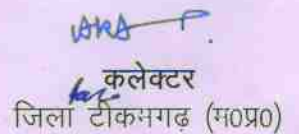 कलेक्टर
जिला टीकमगढ़ (म0प्र0)